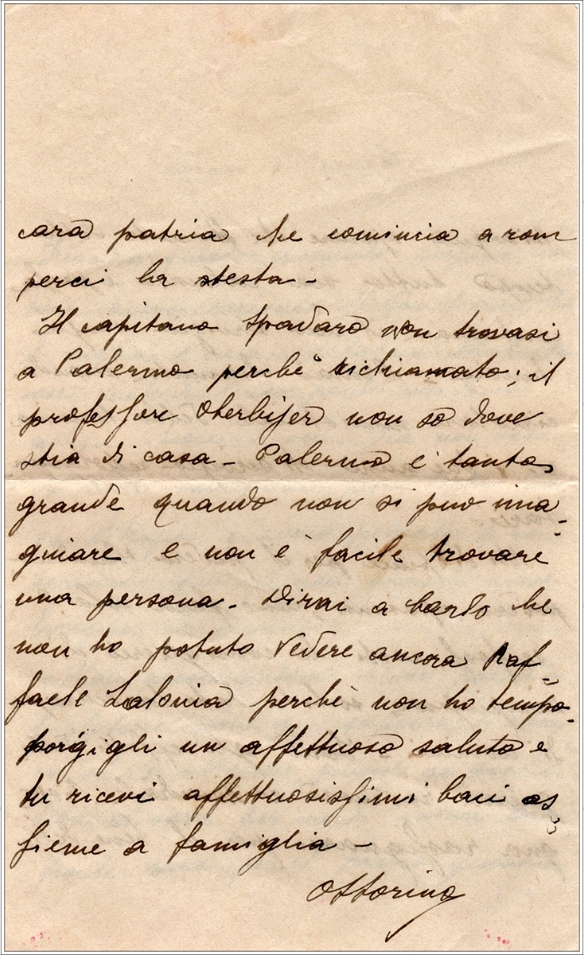 cara patria che comincia a rom
perci la testa -
Il capitano Spadaro non trovasi
a Palermo perchè richiamato; il
professore non so dove
stia di casa - Palermo è tanto
grande quando non si può ima-
ginare e non è facile trovare
una persona. Dirai a Carlo che
non ho potuto vedere ancora Raf-
faele Lalonia perchè non ho tempo.
porgigli un affettuoso saluto e
tu ricevi affettuosissimi baci as
sieme a famiglia -
Ottorino